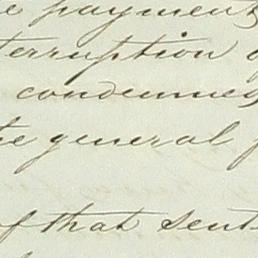 e payment
terruption o
condemned
he general f
of that sent